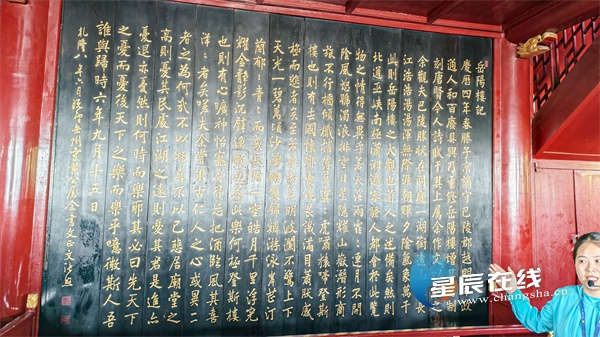 岳陽樓記
慶曆四年春滕子京謫守巴陵郡越明年政
通人和百廢具興乃重修岳陽樓增其舊制
刻唐賢今人詩賦于其上屬余作文以記之
余觀夫巴陵勝狀在洞庭一湖銜遠山吞長
江浩浩湯湯橫無際涯朝暉夕陰氣象萬千
此則岳陽樓之大觀也前人之述備矣然則
北通巫峽南極瀟湘遷客騷人多會於此覽
物之情得無異乎若夫霪雨霏霏連月不開
陰風怒號濁浪排空日星隱耀山岳潛形商
旅不行檣傾楫摧薄暮冥冥虎嘯猿啼登斯
樓也則有去國懷鄉憂讒畏譏滿目蕭然感
極而悲者矣至若春和景明波瀾不驚上下
天光一碧萬頃沙鷗翔集錦鱗游泳岸芷汀
蘭郁々青々而或長煙一空皓月千里浮光
耀金靜影沉璧漁歌互答此樂何極登斯樓
也則有心曠神怡寵辱皆忘把酒臨風其喜
洋々者矣嗟夫余嘗求古仁人之心或異二
者之為何哉不以物喜不以己悲居廟堂之
高則憂其民處江湖之遠則憂其君是進亦
憂退亦憂然則何時而樂耶其必曰先天下
之憂而憂後天下之樂而樂乎噫微斯人吾
誰與歸時六年九月十五日
乾隆八年六月
星辰在线
www.changsha.cn